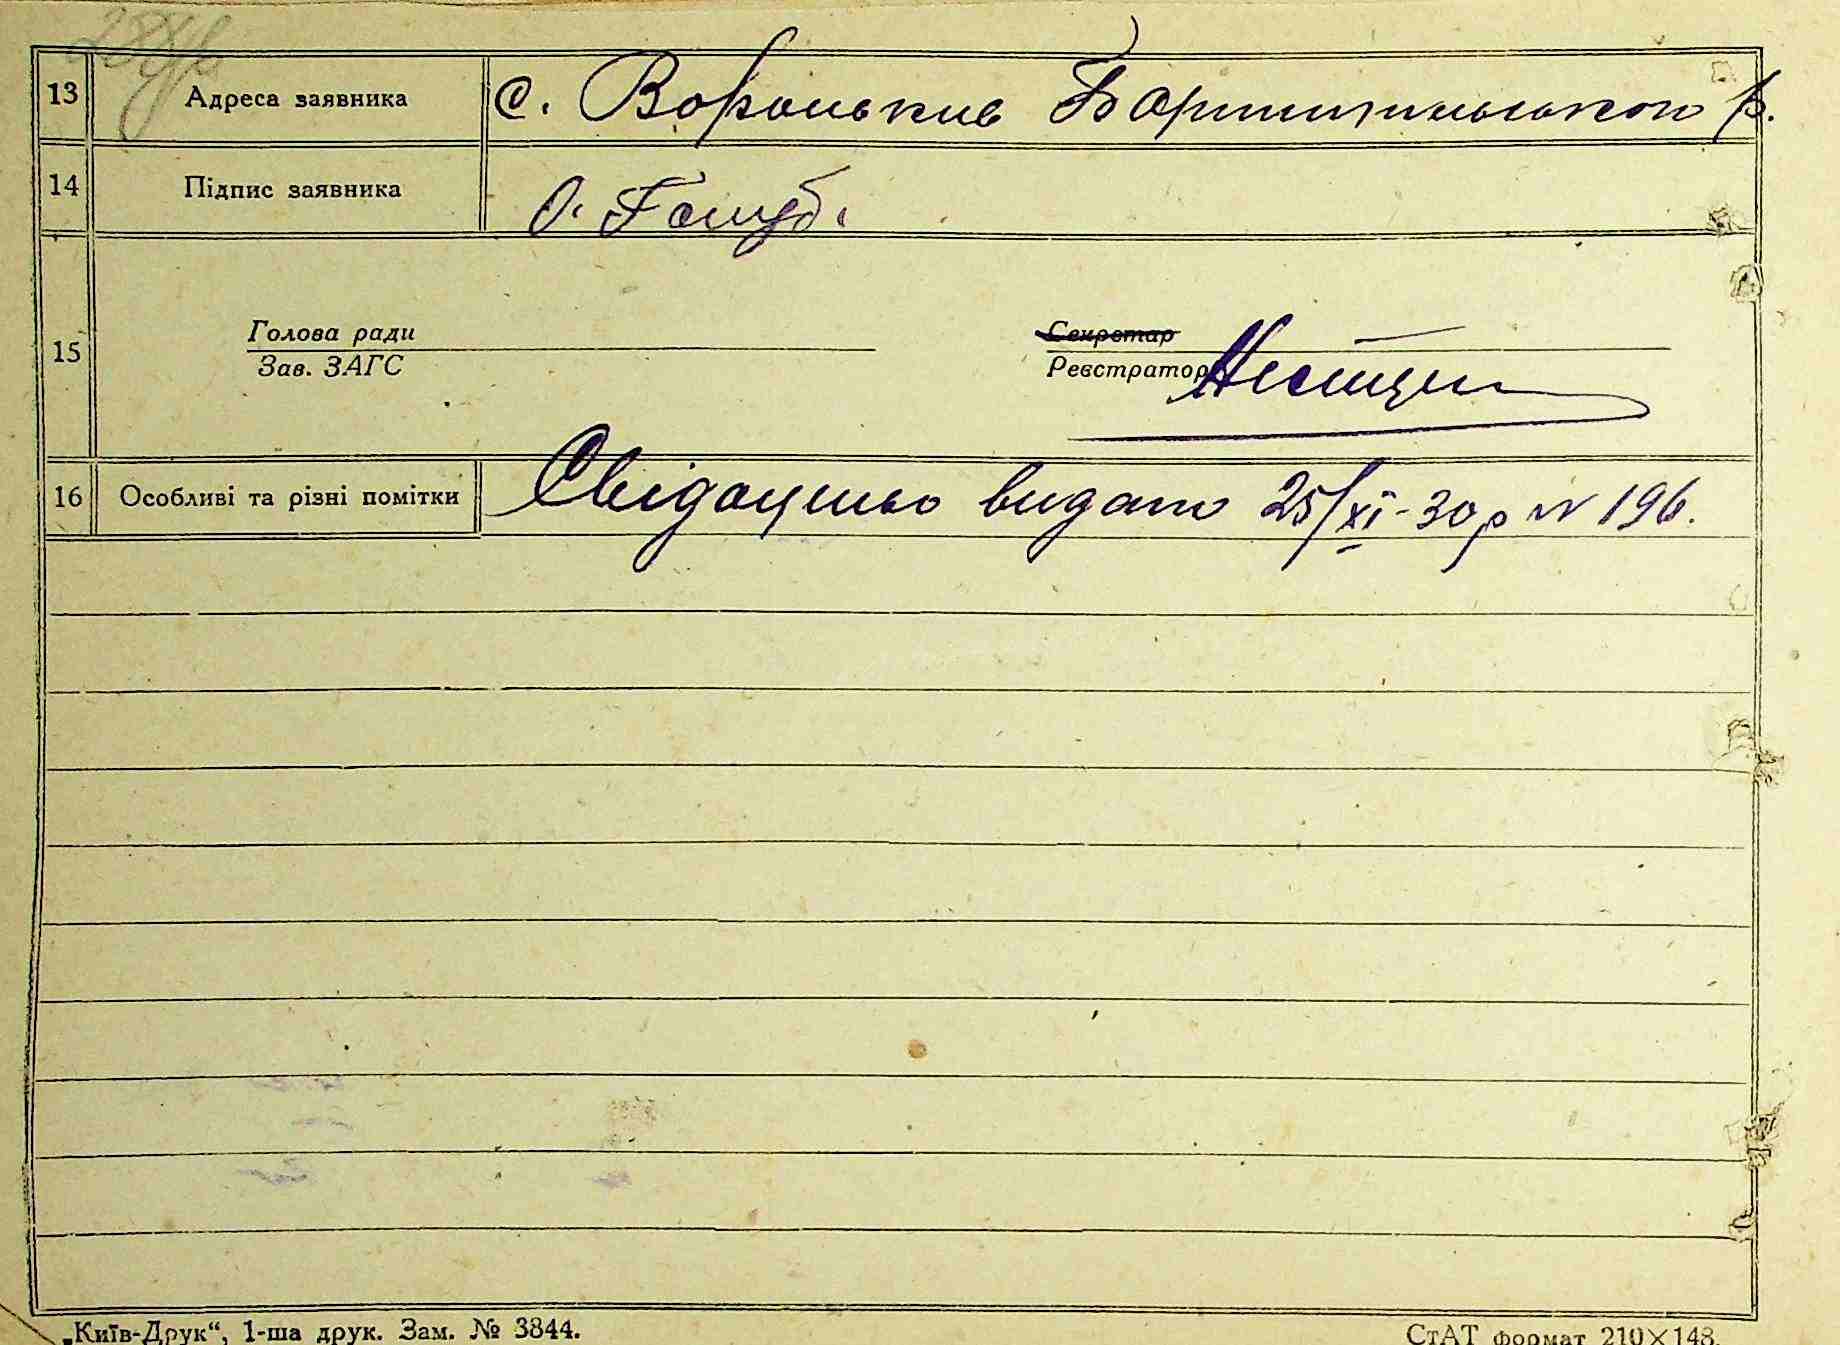 13 Адреса заявника с. Вороньков Баришпільського р.
14 Підпис заявника О. Голуб.
Голова ради Секретар
15
Зав. ЗАГС Реєстратор
16 Особливі та різні помітки Свідоцтво видано 25/XI-30 р № 196.
„Київ-Друк“, 1-ша друк. Зам. № 3844.
СтАТ формат 210×148.